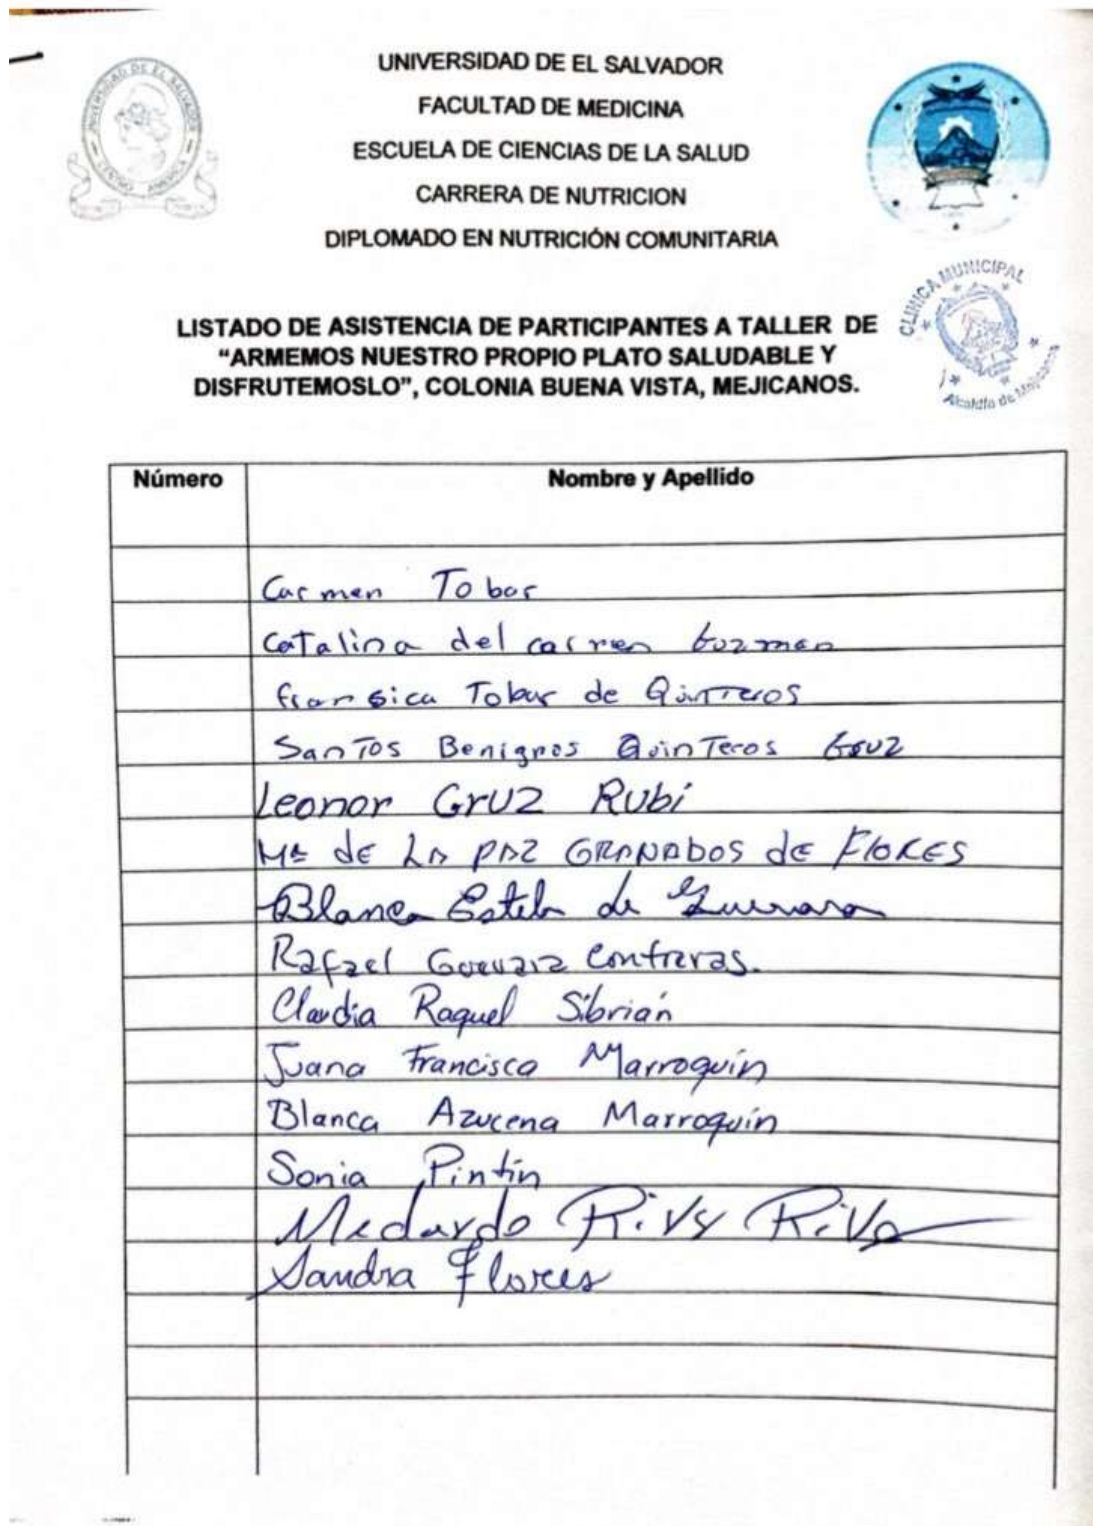 UNIVERSIDAD DE EL SALVADOR
FACULTAD DE MEDICINA
ESCUELA DE CIENCIAS DE LA SALUD
CARRERA DE NUTRICION
DIPLOMADO EN NUTRICIÓN COMUNITARIA
CLINICA MUNICIPAL
Alcaldía de Mejicanos
LISTADO DE ASISTENCIA DE PARTICIPANTES A TALLER DE
“ARMEMOS NUESTRO PROPIO PLATO SALUDABLE Y
DISFRUTEMOSLO”, COLONIA BUENA VISTA, MEJICANOS.
Número Nombre y Apellido
Carmen Tobar
Catalina del carmen Guzman
fransica Tobar de Quinteros
Santos Benignos Quinteros
Leonor Cruz Rubi
Mª de LA PAZ GRANADOS de FlORES
Blanca Estela de Guevara
Rafael Guevara Contreras.
Claudia Raquel Sibrián
Juana Francisca Marroquín
Blanca Azucena Marroquín
Sonia Pintín
Medardo Rivas Riva
Sandra Flores